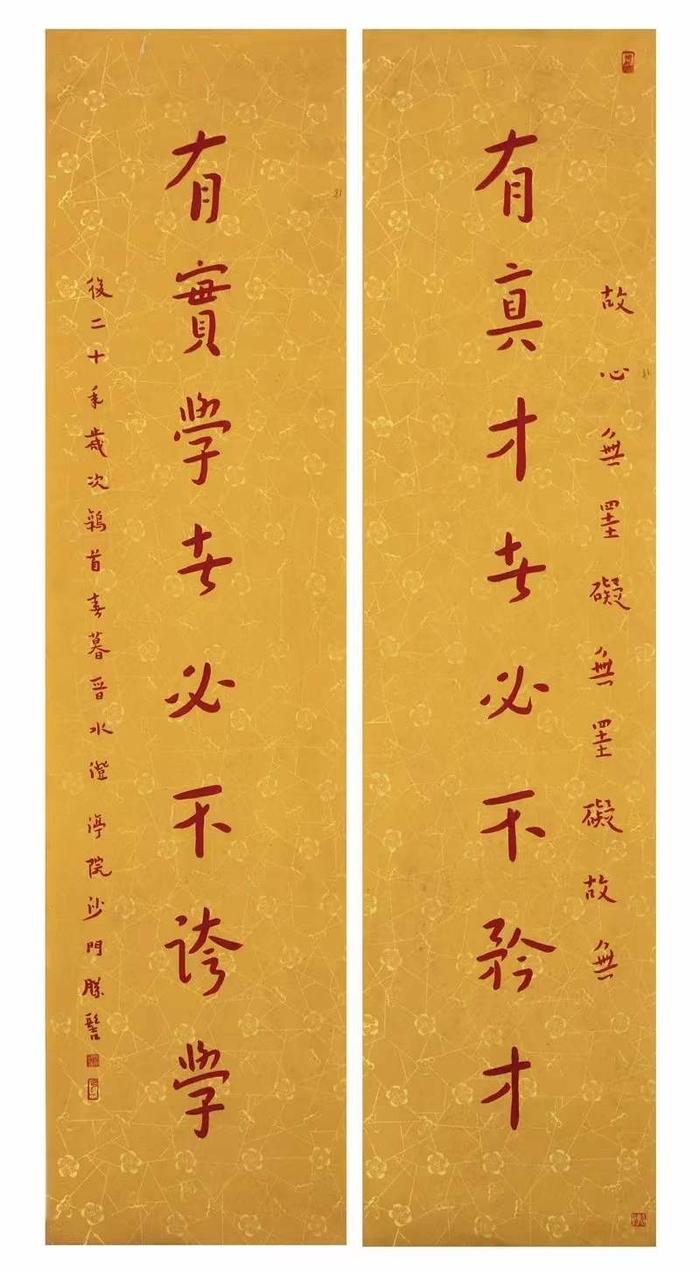 故心無罣礙無罣礙故無
有真才者必不矜才
有實学者必不誇学
後二十年歲次鶉首春暮晉水澄渟院沙門勝髻